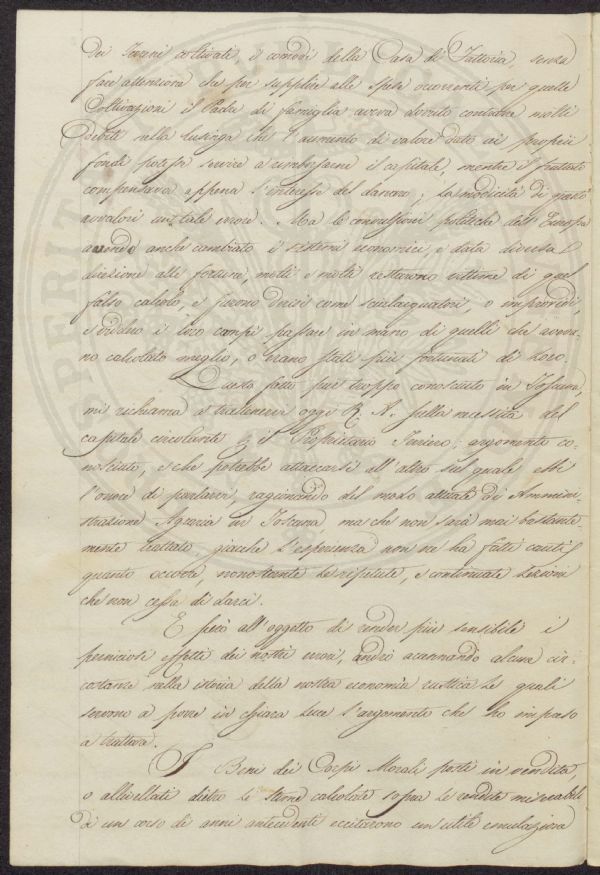 dei Terreni coltivati, e comodi della Casa di Fattoria, senza
fare attenzione che per supplire alle spese occorrenti per quelle
Coltivazioni il Padre di famiglia aveva dovuto contrarre molti
Debiti nella lusinga che l'aumento di valore dato ai proprii
fondi potesse servire a rimborsarne il capitale, mentre il fruttato
compensava appena l'interesse del danaro; la modicità di questi
avvalori un tale errore. Ma le convulsioni politiche dell'Europa
avendo anche cambiato i sistemi economici, e data diversa
direzione alle fortune, molti e molti restarono vittime di quel
falso calcolo, e furono derisi come scialacquatori, o improvidi,
vedendo i loro campi passare in mano di quelli che aveva-
no calcolato meglio, o erano stati più fortunati di loro.
Questo fatto pur troppo conosciuto in Toscana,
mi richiama a trattenervi oggi R. A. sulla necessità del
capitale circolante il Proprietario Terriero; argomento co-
nosciuto, e che potrebbe attaccarsi all'altro sul quale ebbi
l'onore di parlarvi, ragionando del modo attuale di Ammini-
strazione Agraria in Toscana, ma che non sarà mai bastante-
mente trattato, giacchè l'esperienza non ne ha fatti cauti
quanto occorre, nonostante le ripetute, e continuate lezioni
che non cessa di darci.
E però all'oggetto di render più sensibili i
perniciosi effetti dei nostri errori, andrò accennando alcune cir-
costanze nella istoria della nostra economia rustica le quali
servono a porre in chiara luce l'argomento che ho impreso
a trattare.
I Beni dei Corpi Morali posti in vendita,
o allivellati dietro le stime calcolate sopra le rendite miserabili
di un corso di anni antecedenti eccitarono un'utile emulazione